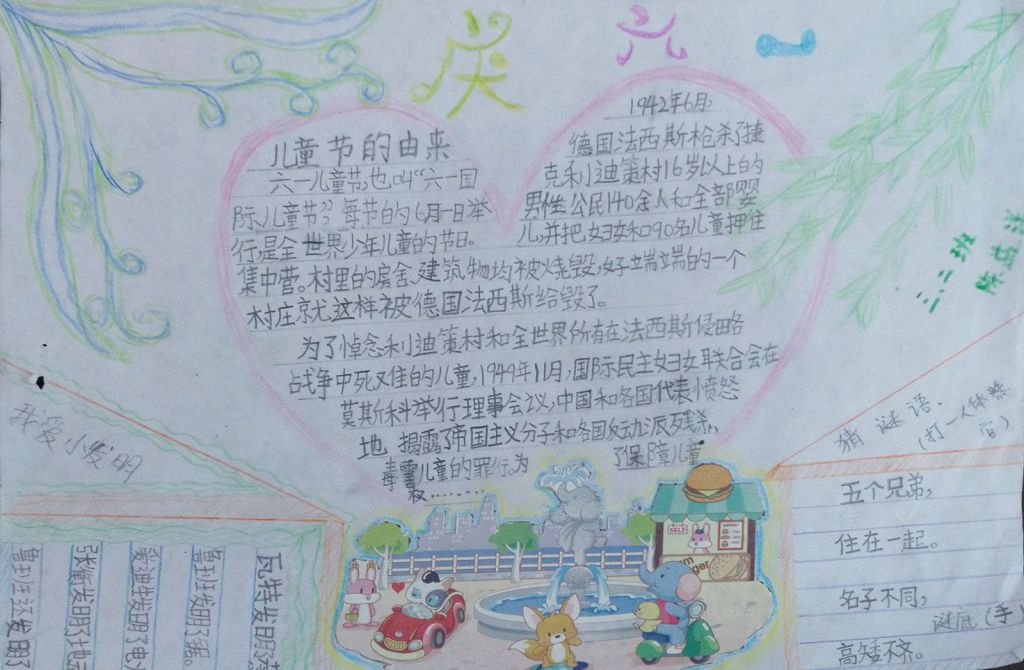 庆六一
儿童节的由来
六一儿童节,也叫“六一国
际儿童节”,每节的6月一日举
行,是全世界少年儿童的节日。
1942年6月:
德国法西斯枪杀了捷
克利迪策村16岁以上的
男性公民140余人和全部婴
儿,并把妇女和90名儿童押住
集中营。村里的房舍、建筑物均被烧毁,好端端的一个
村庄就这样被德国法西斯给毁了。
为了悼念利迪策村和全世界所有在法西斯侵略
战争中死难的儿童,1949年11月,国际民主妇女联合会在
莫斯科举行理事会议,中国和各国代表愤怒
地揭露了帝国主义分子和各国反动派残杀、
毒害儿童的罪行。为了保障儿童
权......
二二班
我爱小发明
瓦特发明
鲁班发明了锯。
爱迪生发明了电
张衡发明了地
鲁班还发明了
猜谜语。
(打一人体器
官)
五个兄弟,
住在一起。
名子不同,
高矮不齐。
谜底(手)
SELF